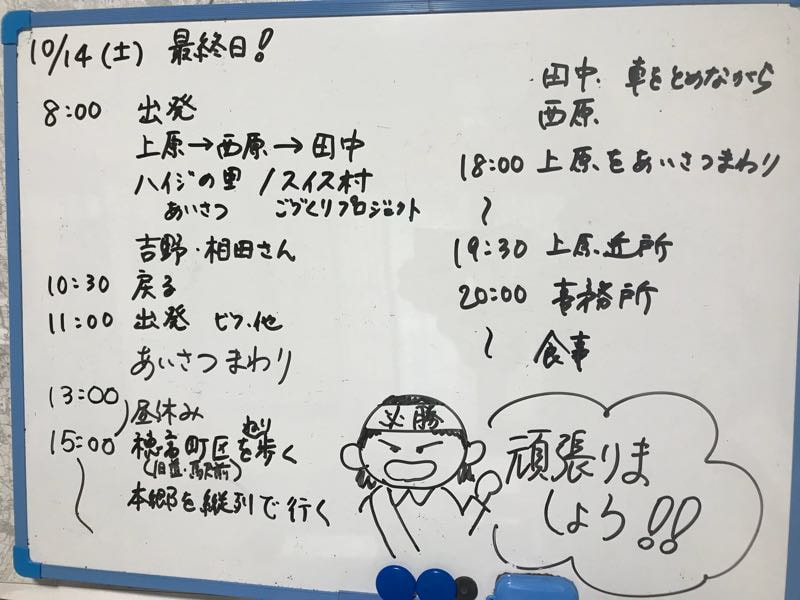 10/14(土) 最終日!
8:00 出発
上原→西原→田中
ハイジの里 / スイス村
あいさつ ごづくりプロジェクト
吉野・相田さん
10:30 戻る
11:00 出発 ビフ、他
あいさつまわり
13:00
昼休み
15:00 穂高町区を歩く
(旧道・駅前)
本郷を縦列で行く
田中、車をとめながら
西原
18:00 上原をあいさつまわり
〜
19:30 上原近所
20:00 事務所
〜 食事
必勝
頑張りま
しょう!!